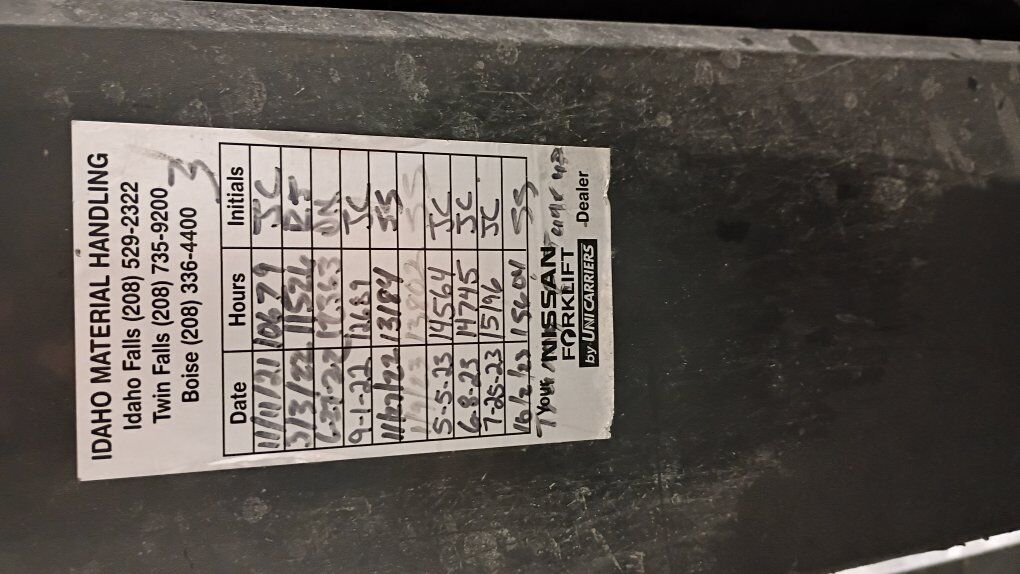 IDAHO MATERIAL HANDLING
Idaho Falls (208) 529-2322
Twin Falls (208) 735-9200
Boise (208) 336-4400
3
Date Hours Initials
11/11/21 10679 JC
3/3/22 11526
9-1-22 12689 JC
11/27/22 13184 SS
5-5-23 14564 JC
6-8-23 14745 JC
7-25-23 15196 JC
10/2/23 15604 SS
Your NISSAN
FORKLIFT
by UNICARRIERS Dealer